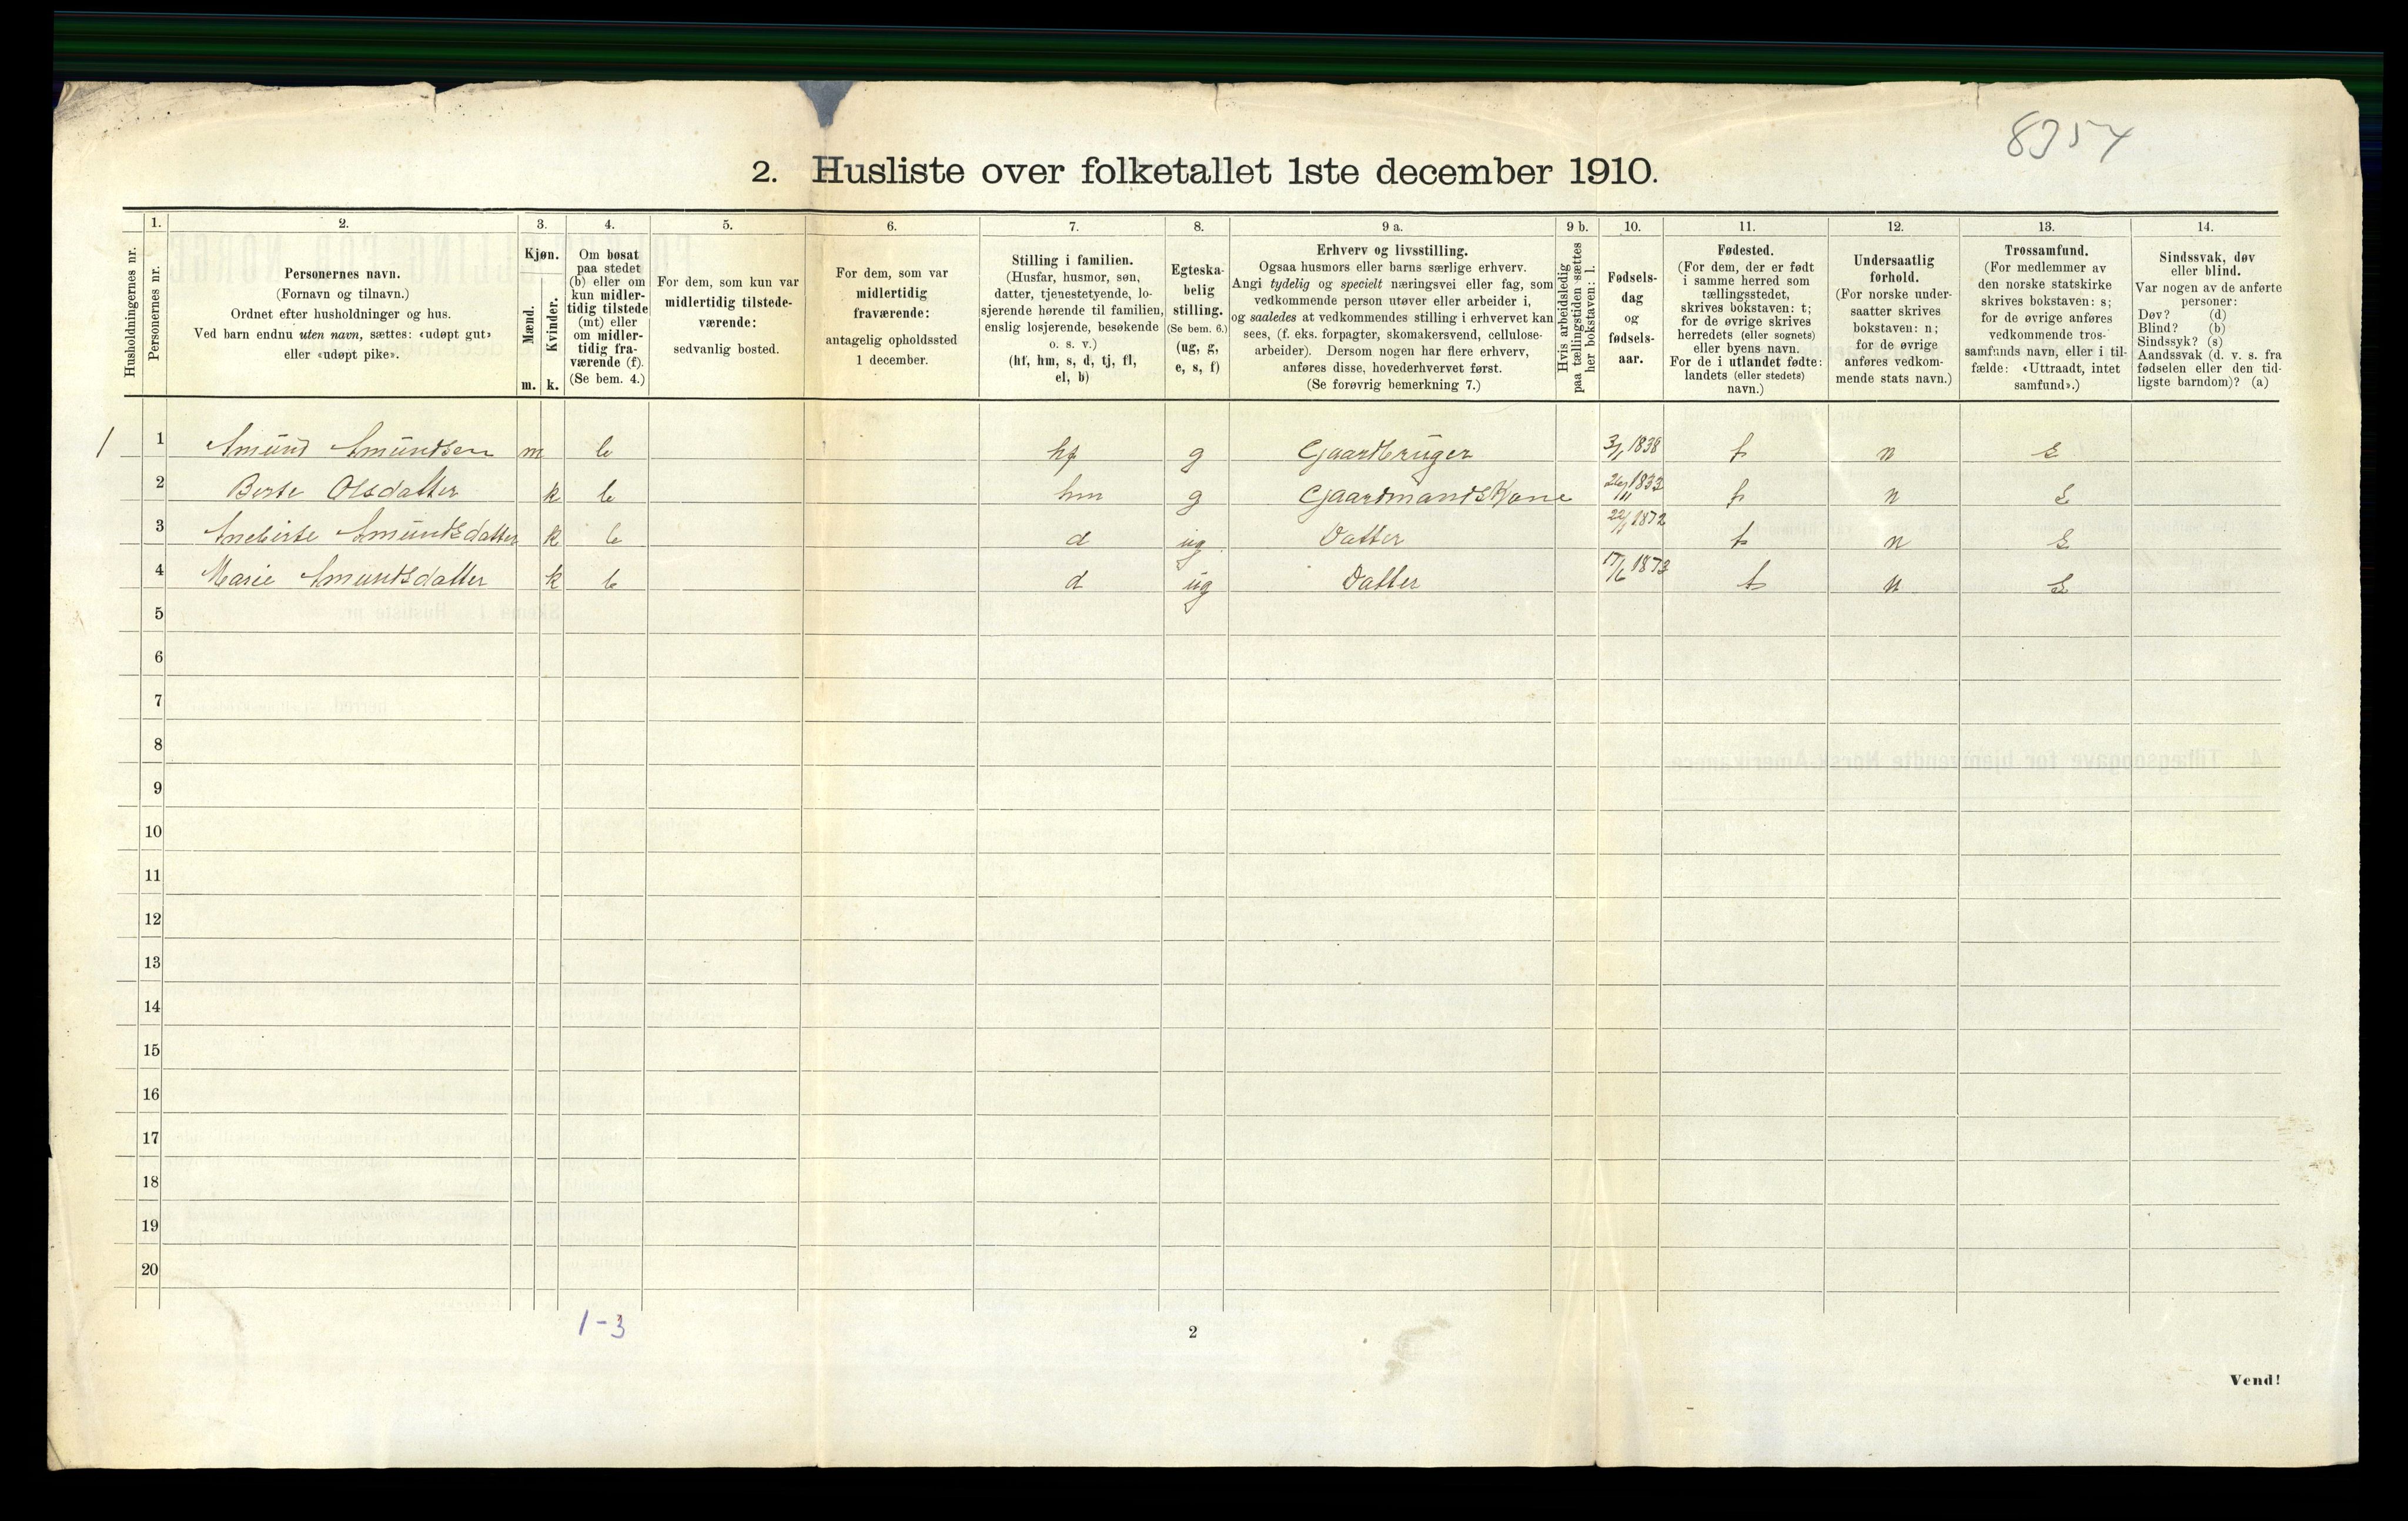 8354
2. Husliste over folketallet 1ste december 1910.
Husholdningernes nr.
1.
Personernes nr.
2.
Personernes navn.
(Fornavn og tilnavn.)
Ordnet efter husholdninger og hus.
Ved barn endnu uten navn, sættes: «udøpt gut»
eller «udøpt pike».
3.
Kjøn.
Mænd.
Kvinder.
m. k.
4.
Om bosat
paa stedet
(b) eller om
kun midler-
tidig tilstede
(mt) eller
om midler-
tidig fra-
værende (f).
(Se bem. 4.)
5.
For dem, som kun var
midlertidig tilstede-
værende:
sedvanlig bosted.
6.
For dem, som var
midlertidig
fraværende:
antagelig opholdssted
1 december.
7.
Stilling i familien.
(Husfar, husmor, søn,
datter, tjenestetyende, lo-
sjerende hørende til familien,
enslig losjerende, besøkende
o. s. v.)
(hf, hm, s, d, tj, fl,
el, b)
8.
Egteska-
belig
stilling.
(Se bem. 6.)
(ug, g,
e, s, f)
9 a.
Erhverv og livsstilling.
Ogsaa husmors eller barns særlige erhverv.
Angi tydelig og specielt næringsvei eller fag, som
vedkommende person utøver eller arbeider i,
og saaledes at vedkommendes stilling i erhvervet kan
sees, (f. eks. forpagter, skomakersvend, cellulose-
arbeider). Dersom nogen har flere erhverv,
anføres disse, hovederhvervet først.
(Se forøvrig bemerkning 7.)
9 b.
Hvis arbeidsledig
paa tællingstiden sættes
her bokstaven: l.
10.
Fødsels-
dag
og
fødsels-
aar.
11.
Fødested.
(For dem, der er født
i samme herred som
tællingsstedet,
skrives bokstaven: t;
for de øvrige skrives
herredets (eller sognets)
eller byens navn.
For de i utlandet fødte:
landets (eller stedets)
navn.)
12.
Undersaatlig
forhold.
(For norske under-
saatter skrives
bokstaven: n;
for de øvrige
anføres vedkom-
mende stats navn.)
13.
Trossamfund.
(For medlemmer av
den norske statskirke
skrives bokstaven: s;
for de øvrige anføres
vedkommende tros-
samfunds navn, eller i til-
fælde: «Uttraadt, intet
samfund».)
14.
Sindssvak, døv
eller blind.
Var nogen av de anførte
personer:
Døv? (d)
Blind? (b)
Sindssyk? (s)
Aandssvak (d. v. s. fra
fødselen eller den tid-
ligste barndom)? (a)
1 1 Amund Amundsen m b hf g Gaardbruger 3/1 1838 t n s
2 Berte Olsdatter k b hm g GaardmandsKone 26/11 1833 t n s
3 Aneberte Amundsdatter k b d ug Datter 22/1 1872 t n s
4 Marie Amundsdatter k b d ug Datter 17/6 1873 t n s
5
6
7
8
9
10
11
12
13
14
15
16
17
18
19
20
1-3
2
Vend!